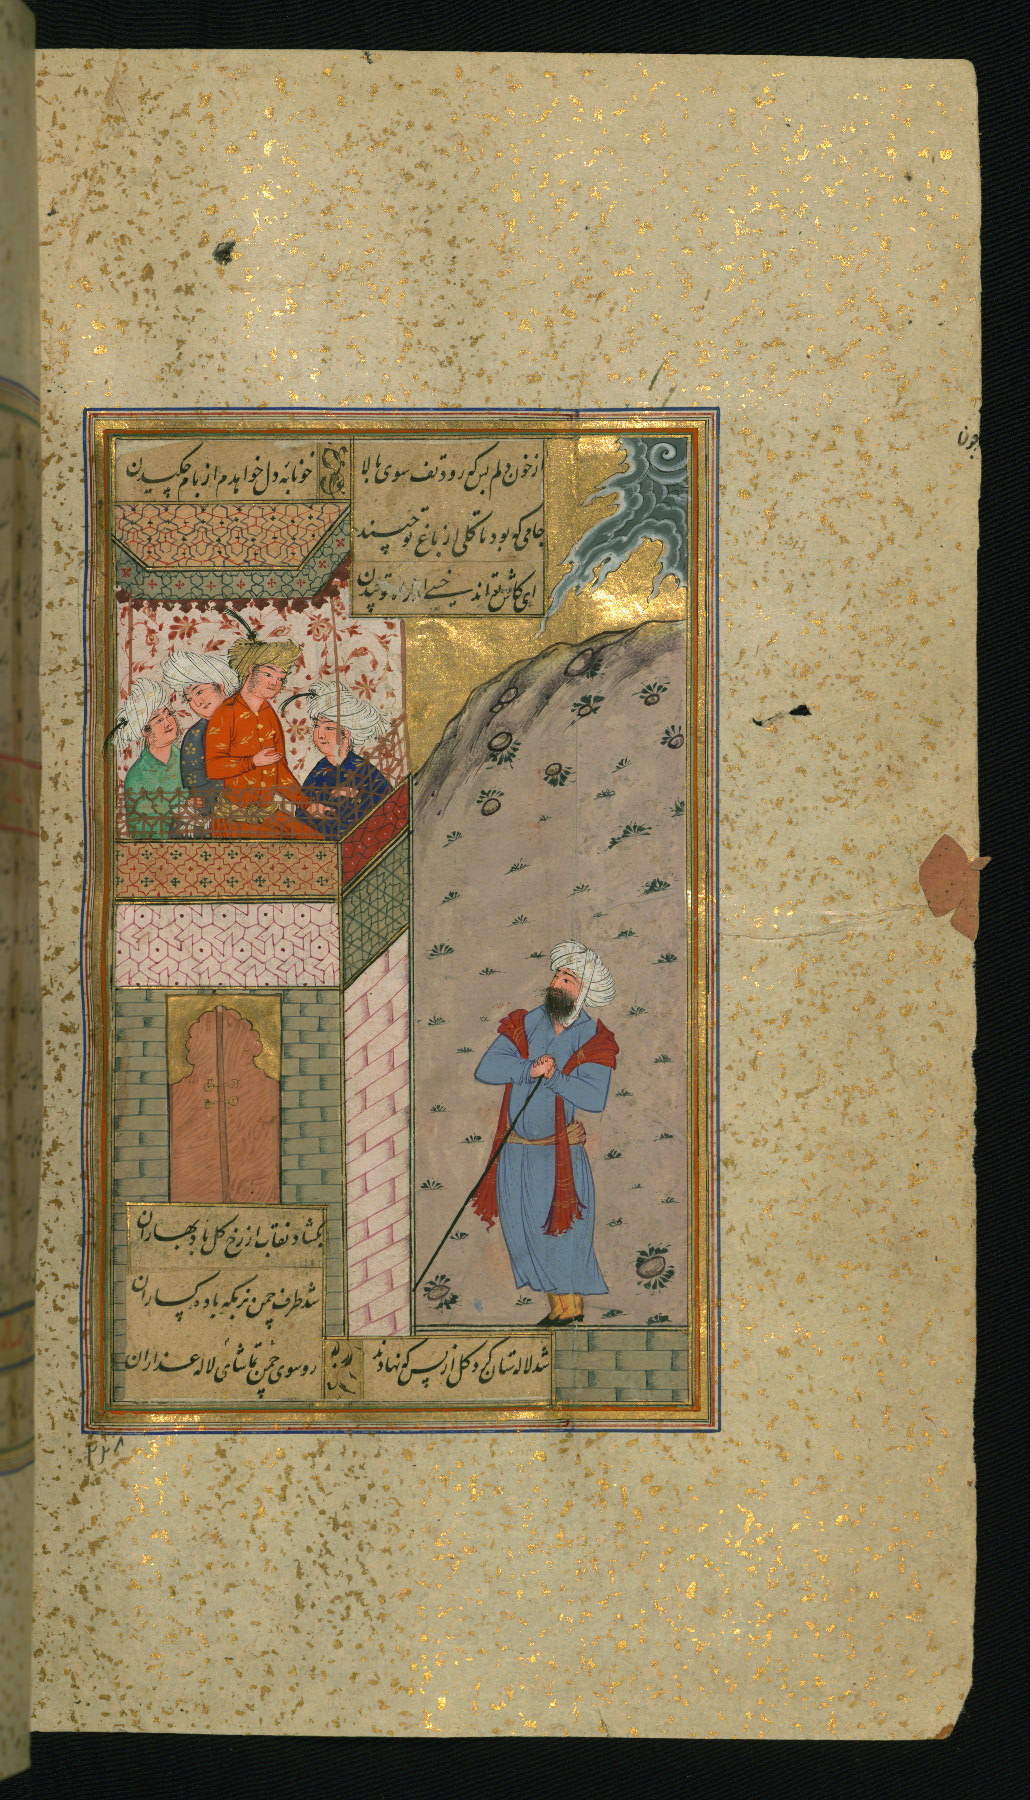 از خون دلم بس که رود تف سوی بالا
خونابهٔ دل خواهدم از بام چکیدن
جامی که بود تا گلی از باغ تو چیند
ای کاش تواند خسی از راه تو چیدن
بگشاد نقاب از رخ گل باد بهاران
شد طرف چمن بزمگه باده گساران
شد لاله ستان گرد گل از بس که نهادند
رو سوی چمن تماشای لاله عذاران
چون
۲۲۸